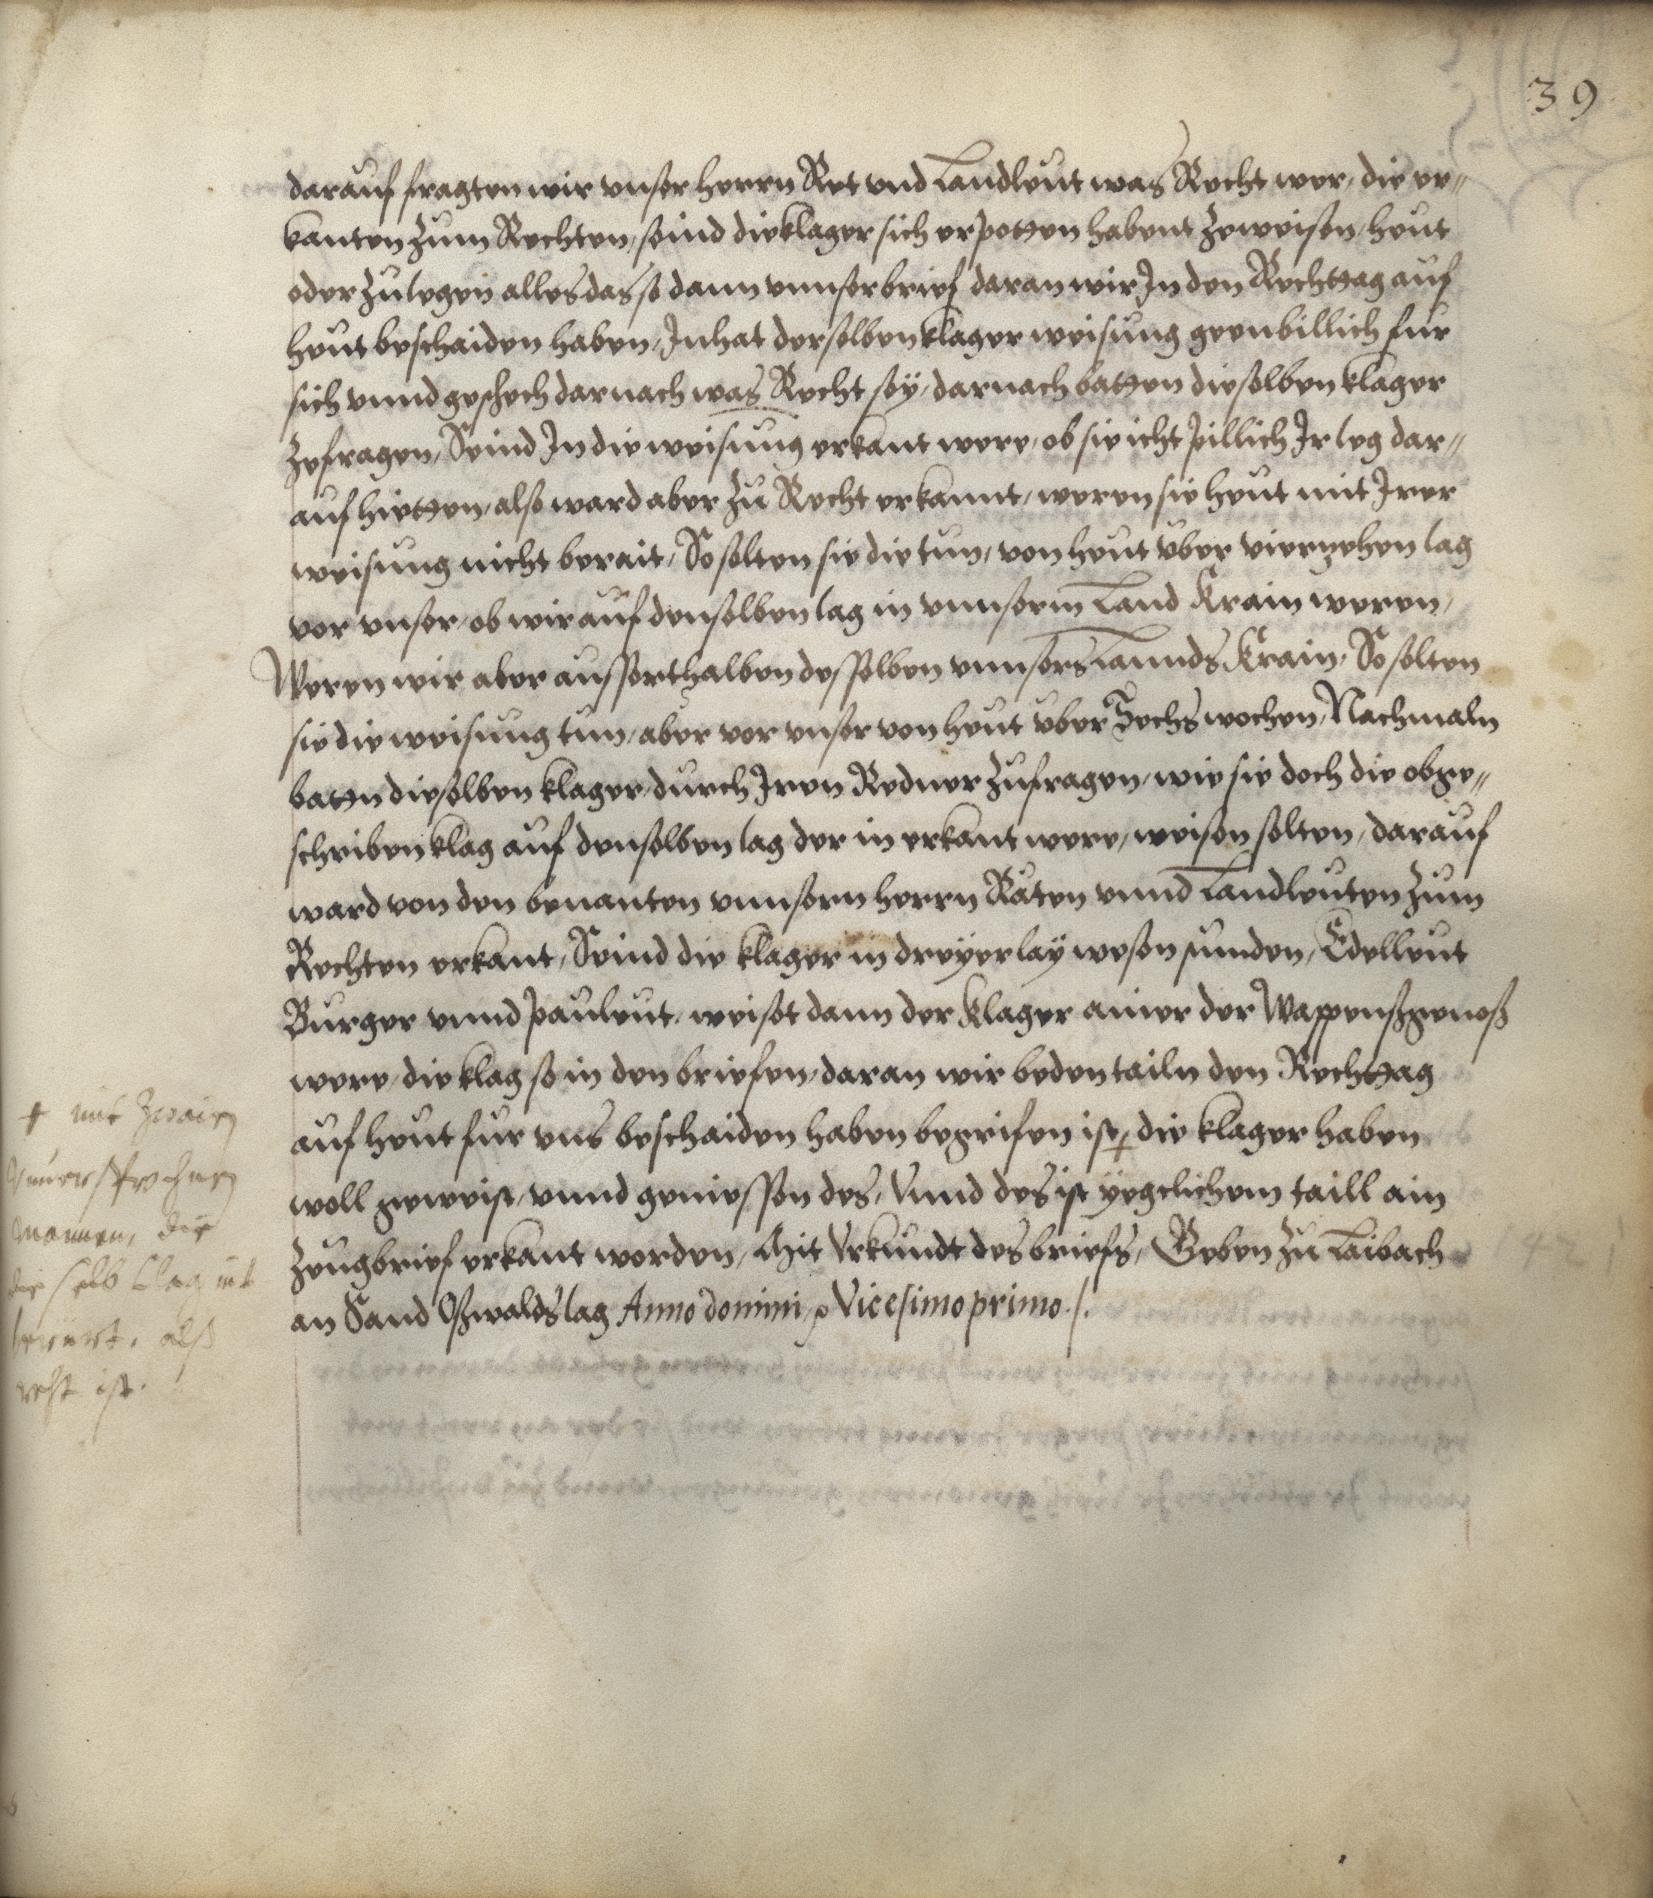 39
darauf fragten wir vnser herrn Ret vnd Landleut was Recht wer, die er„
kanten zum Rechten, seind die klager sich erpotten habent zeweisen, heut
oder zulegen alles das so dann vnnser brief daran wir In den Rechttag auf
heut beschaiden haben, Inhat derselben klager weisung geen billich fur
sich vnnd geschech darnach was Recht seÿ, darnach batten dieselben klager
zefragen, Seind In die weisung erkant were, ob sie icht pillich Ir teg dar„
auf hietten, also ward aber zu Recht erkannt, weren sie heut mit Irer
weisung nicht berait, So solten sie die tun, von heut vber vierzehen tag
vor vnser, ob wir auf denselben tag in vnnserm Land Krain weren,
Weren wir aber ausserthalben desselben vnnsers Lannds Krain, So solten
sie die weisung tun, aber vor vnser von heut vber Sechs wochen, Nachmaln
batten dieselben klager, durch Iren Redner zufragen, wie sie doch die obge„
schriben klag auf denselben tag der in erkant were, weisen solten, darauf
ward von den benanten vnnsern herrn Räten vnnd Landleuten zum
Rechten erkant, Seind die klager in dreÿerlaÿ wesen sunden, Edelleut
Burger vnnd pauleut, weiset dann der klager ainer der Wappenßgenoß
were, die klag so in den briefen, daran wir beden tailn den Rechttag
auf heut fur vns beschaiden haben begrifen ist, + die klager haben
woll geweist, vnnd geniessen des, Vnnd des ist ÿegelichem taill ain
zeugbrief erkant worden, Mit Vrkundt des briefs, Geben zu Laibach
an Sand Oßwalds tag Anno domini Vicesimo primo ./.
+ mit zwaien
vnuersprochnen
mannen, die
die selb Clag mit
bewärt, alß
recht ist.